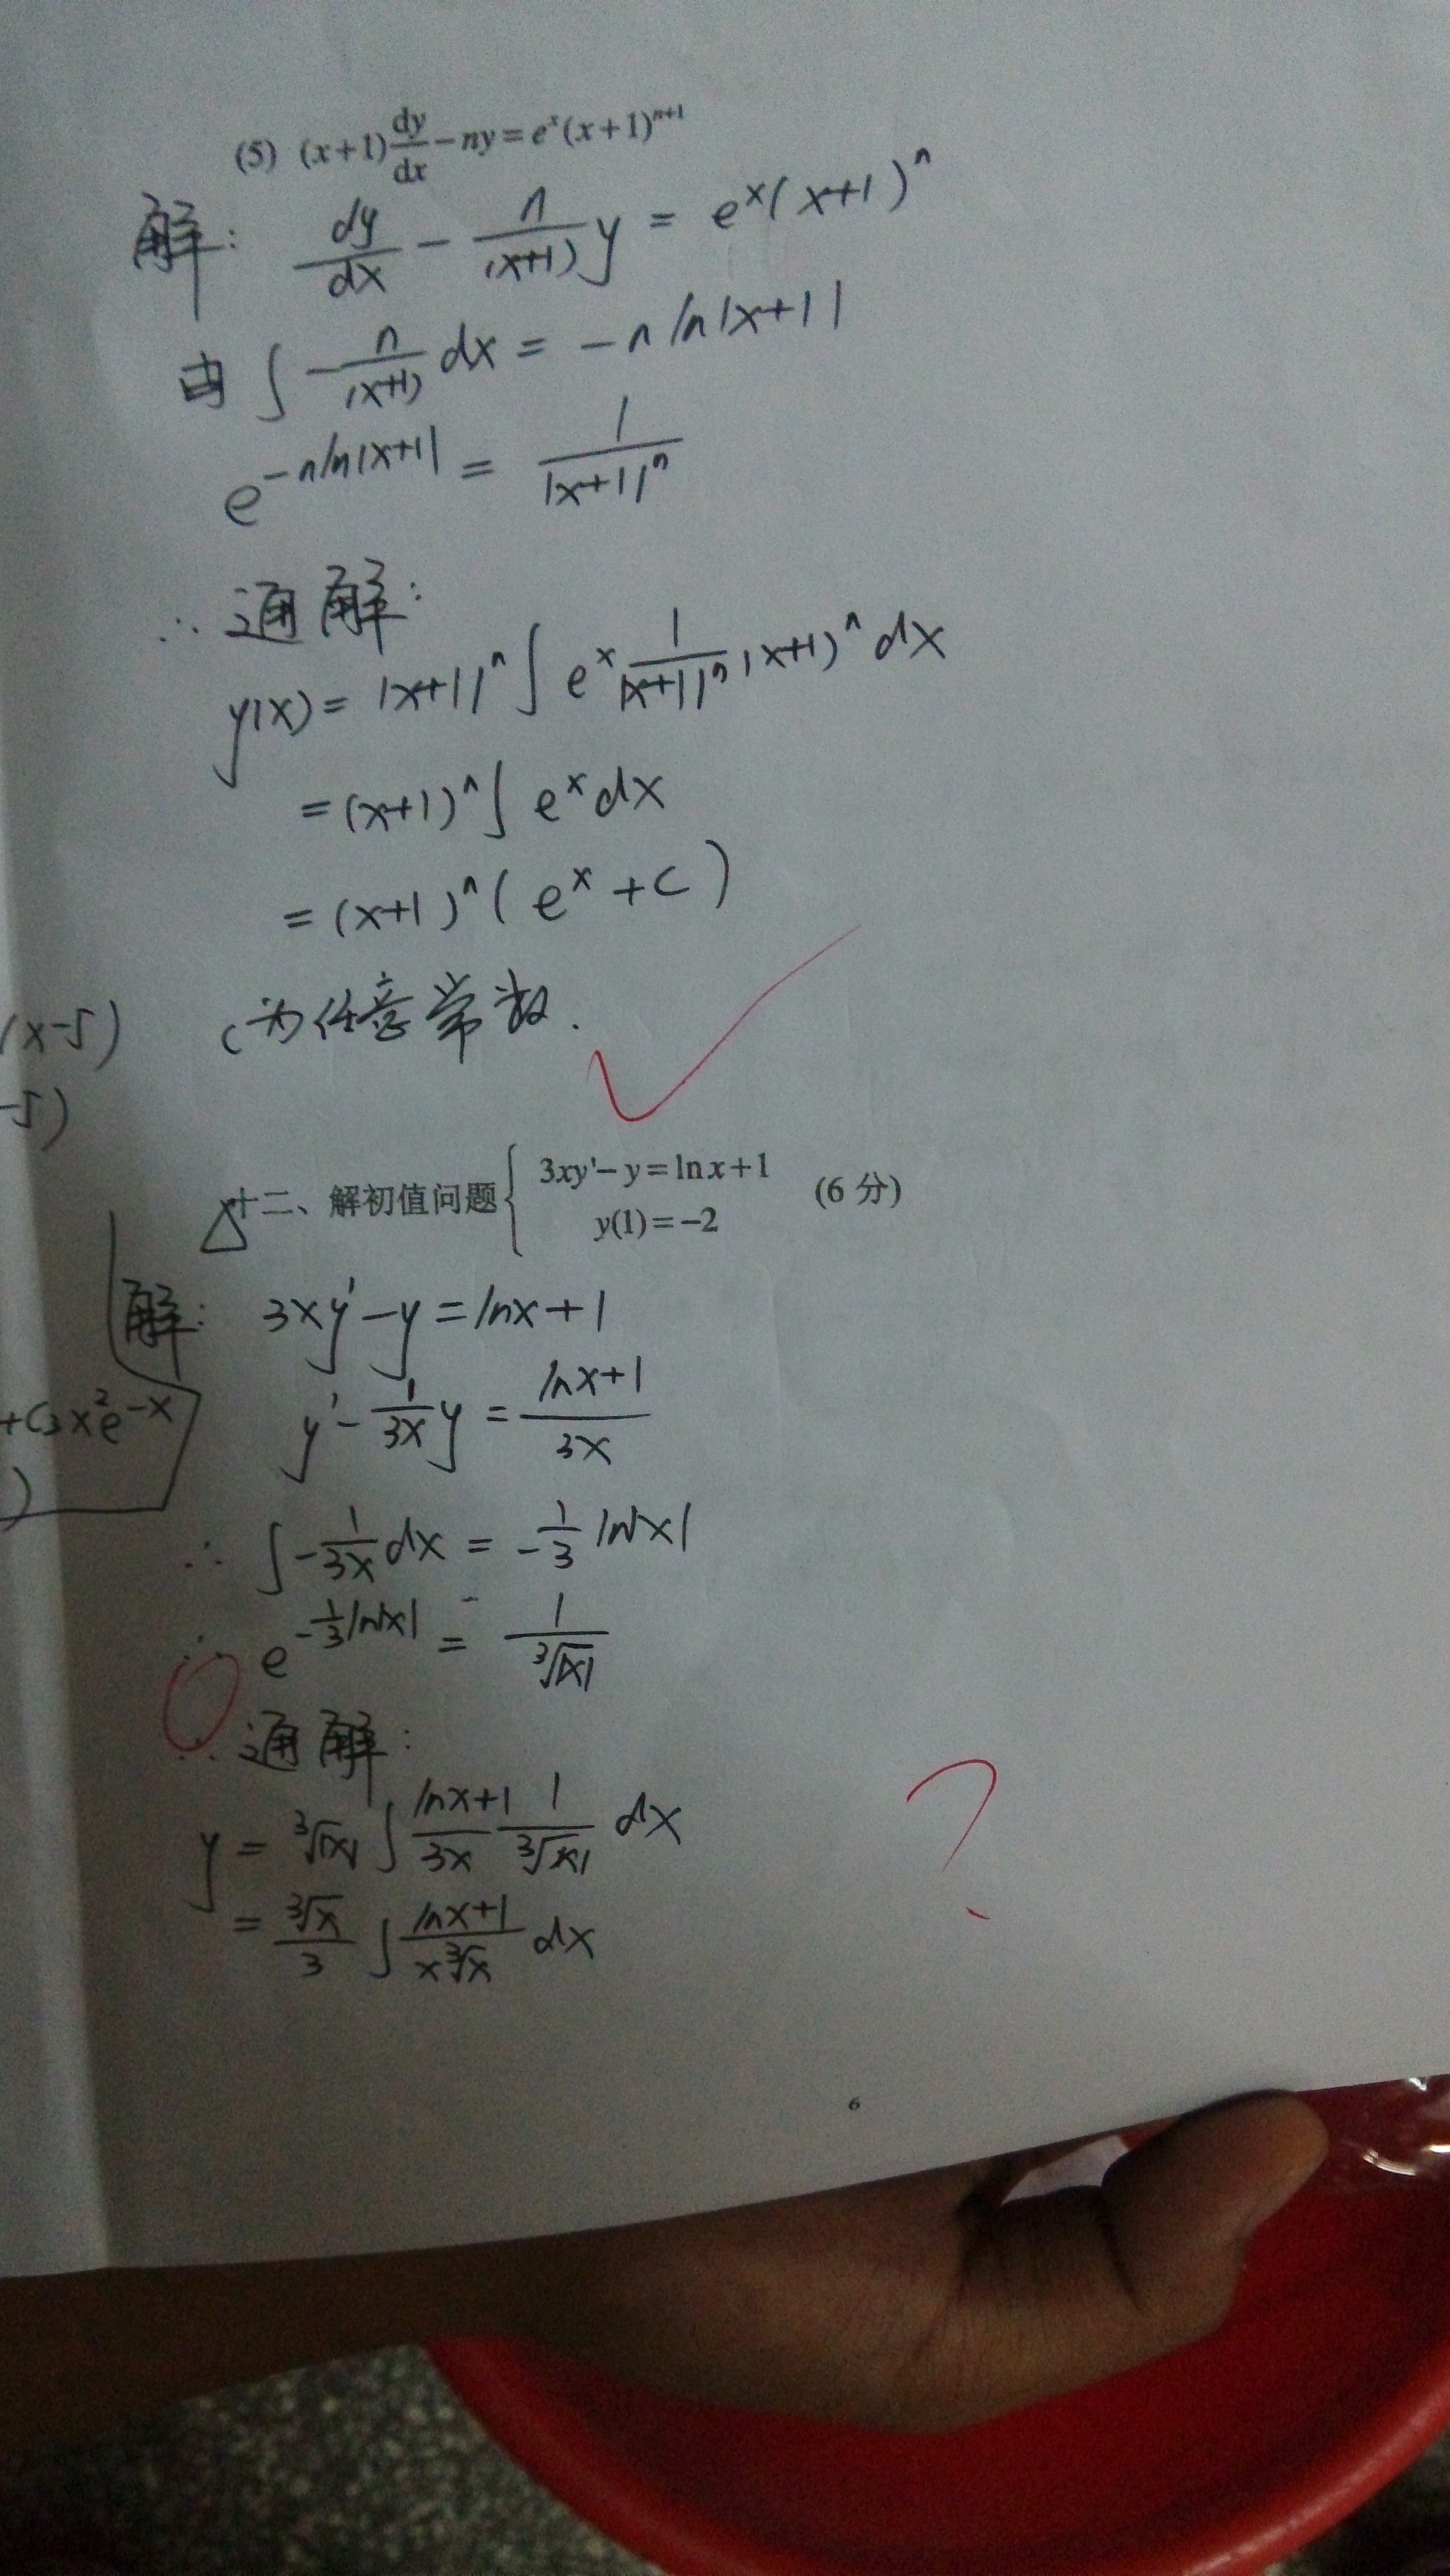 (5) (x+1)dy/dx − ny = eˣ(x+1)ⁿ⁺¹
解: dy/dx − n/(x+1) y = eˣ(x+1)ⁿ
由 ∫ −n/(x+1) dx = −n ln|x+1|
e^(−n ln|x+1|) = 1/|x+1|ⁿ
∴ 通解:
y(x) = |x+1|ⁿ ∫ eˣ 1/|x+1|ⁿ (x+1)ⁿ dx
= (x+1)ⁿ ∫ eˣ dx
= (x+1)ⁿ ( eˣ + C )
(x-5)
C为任意常数.
-5)
△十二、解初值问题 { 3xy' − y = ln x + 1 (6 分)
y(1) = −2
解: 3xy' − y = lnx + 1
y' − 1/3x y = (lnx+1)/3x
+C₃x²e⁻ˣ
)
∴ ∫ −1/3x dx = −1/3 ln|x|
∴ e^(−1/3 ln|x|) = 1/∛|x|
∴ 通解:
y = ∛|x| ∫ (lnx+1)/3x 1/∛|x| dx
?
= ∛x/3 ∫ (lnx+1)/(x∛x) dx
6